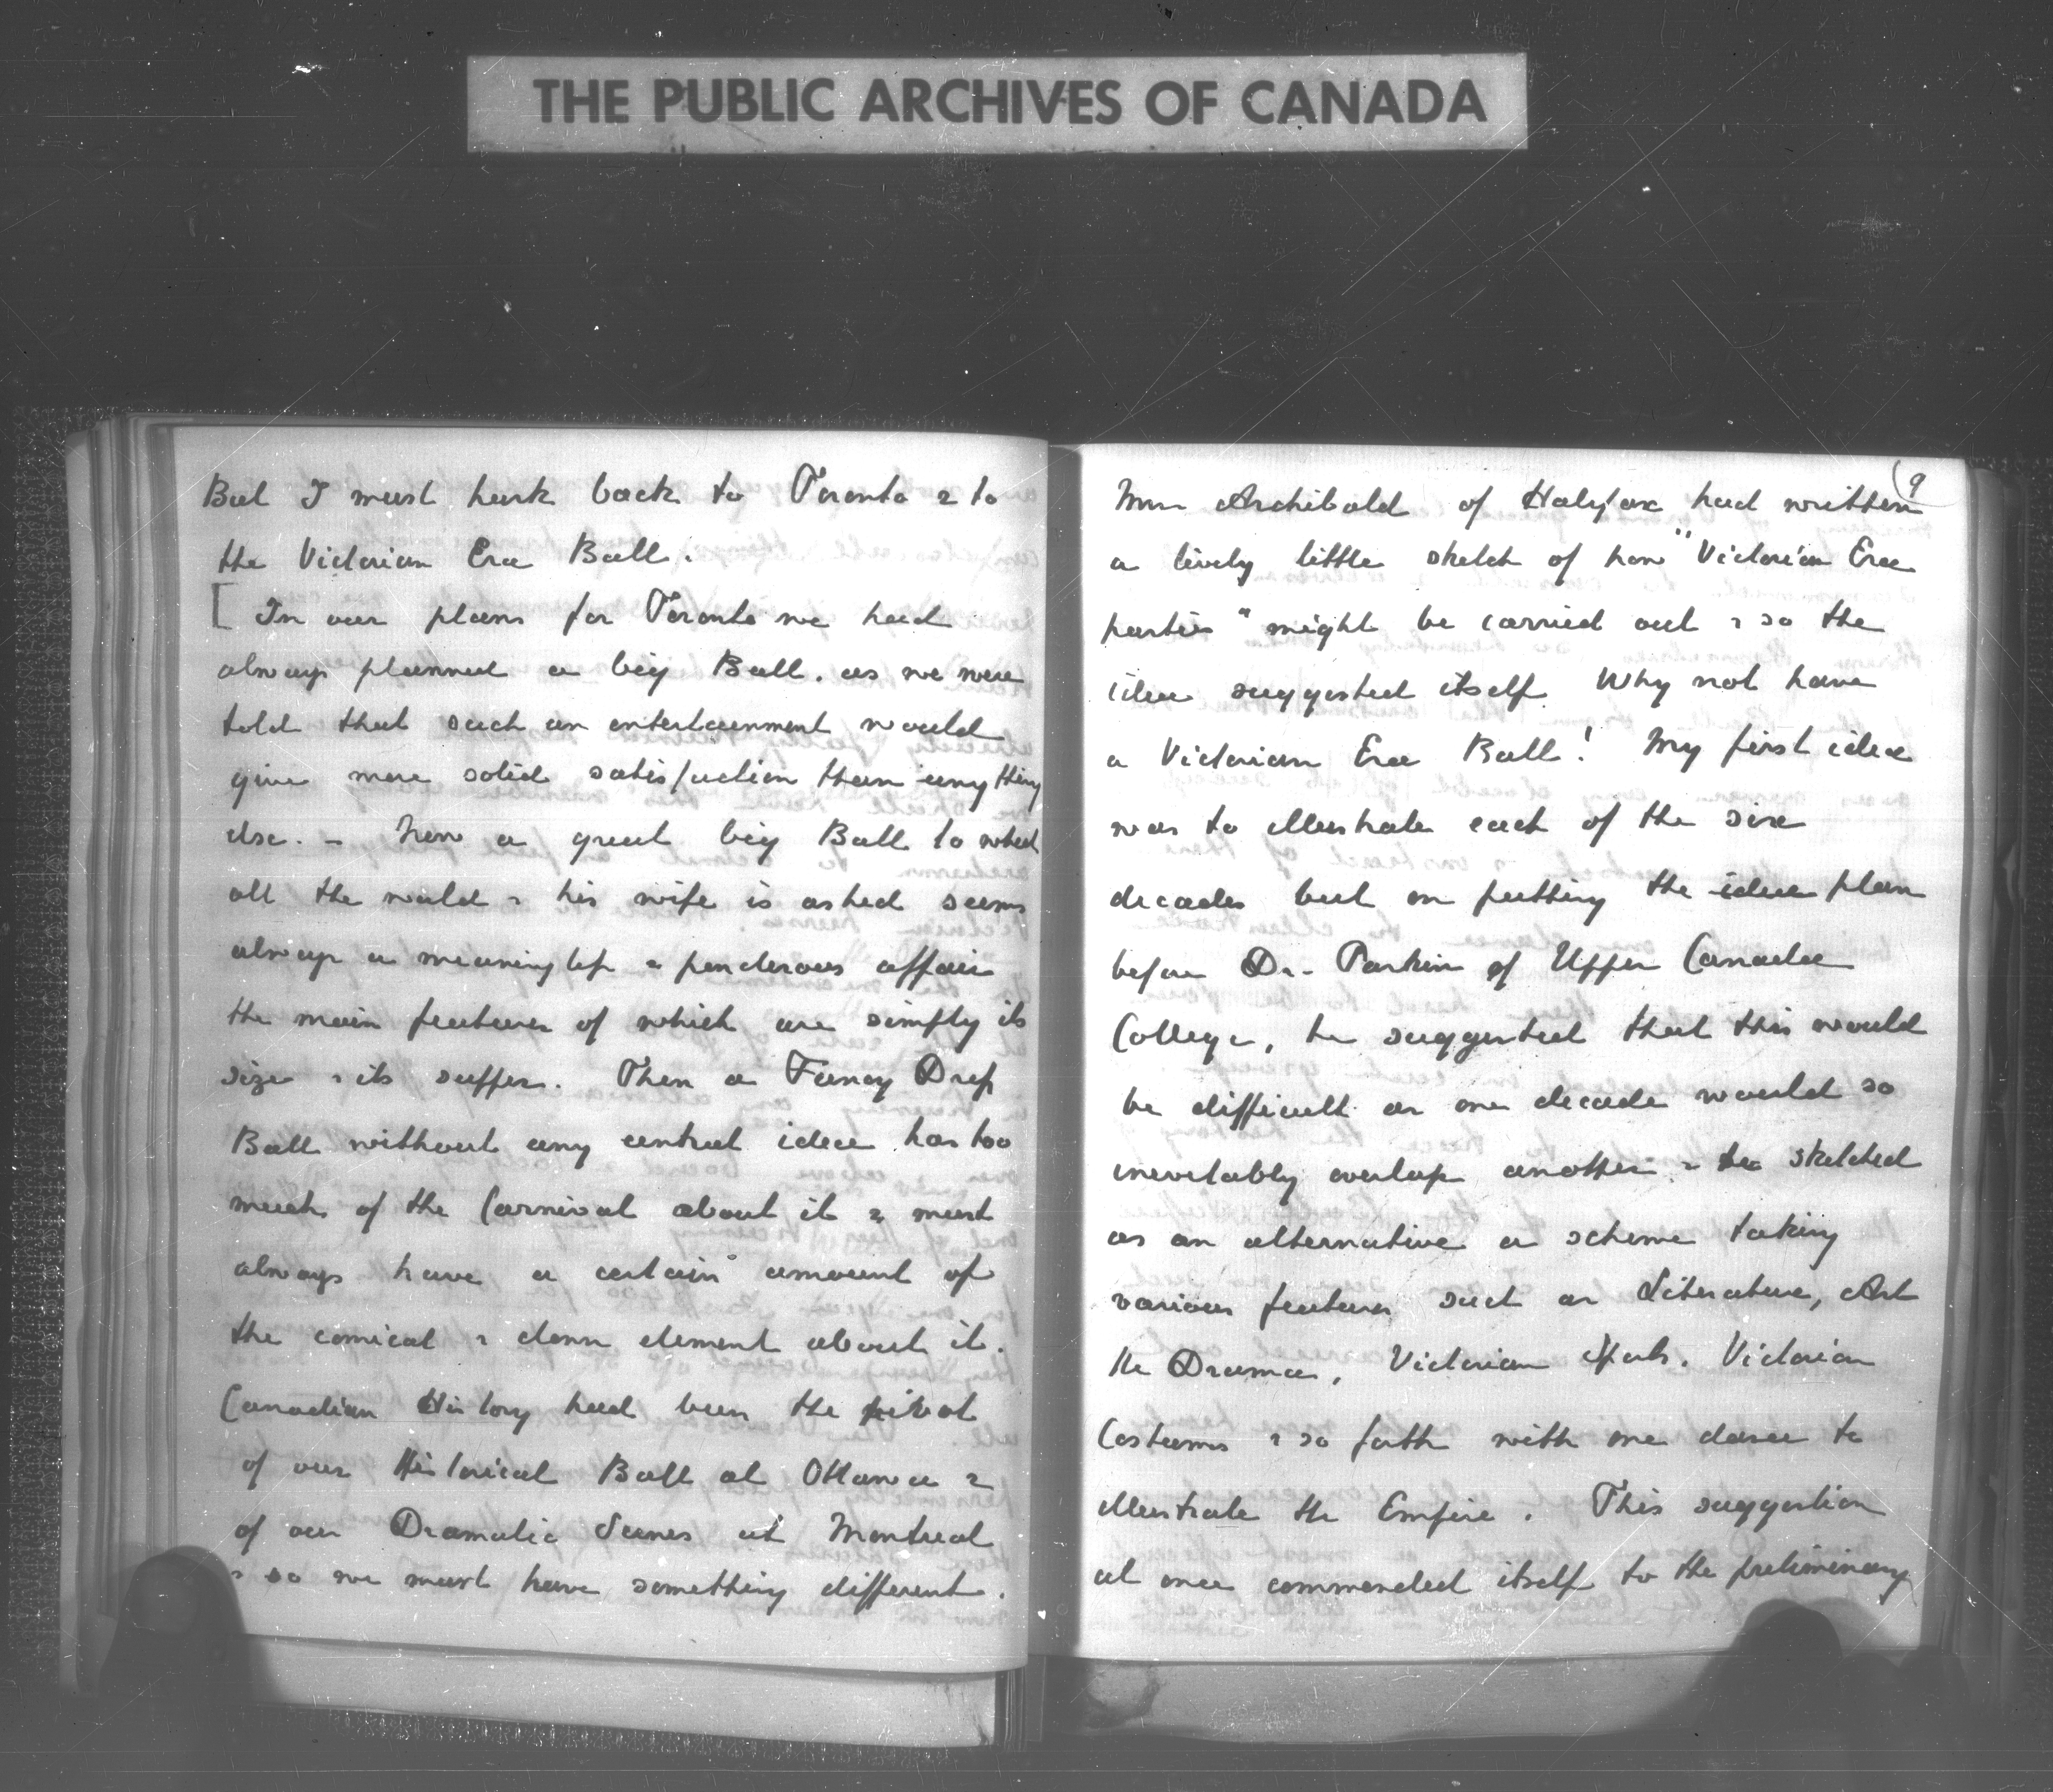 THE PUBLIC ARCHIVES OF CANADA
But I must hark back to Toronto & to
the Victorian Era Ball.
[ In our plans for Toronto we had
always planned a big Ball, as we were
told that such an entertainment would
give more solid satisfaction than anything
else. – Now a great big Ball to which
all the world & his wife is asked seems
always a meaningless & ponderous affair
the main features of which are simply its
size & its supper. Then a Fancy Dress
Ball without any central idea has too
much of the Carnival about it & must
always have a certain amount of
the comical & clown element about it.
Canadian History had been the pivot
of our Historical Ball at Ottawa &
of our Dramatic Scenes at Montreal
& so we must have something different.
(9
Mrs Archibald of Halifax had written
a lively little sketch of how "Victorian Era
parties" might be carried out & so the
idea suggested itself Why not have
a Victorian Era Ball! My first idea
was to illustrate each of the six
decades but on putting the idea plan
before Dr. Parkin of Upper Canada
College, he suggested that this would
be difficult as one decade would so
inevitably overlap another & he sketched
as an alternative a scheme taking
various features such as Literature, Art
the Drama, Victorian Sports, Victorian
Costumes & so forth with one dance to
illustrate the Empire. This suggestion
at once commended itself to the preliminary